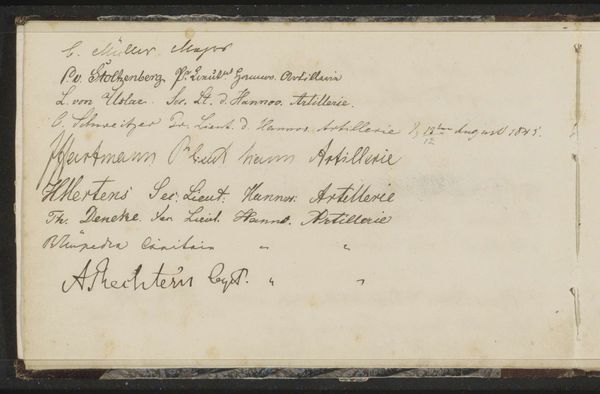 C. Müller Major
P. v. Stoltzenberg. Pr. Lieut. Hannov. Artillerie
L. von Uslar. Sec. Lt. d. Hannov. Artillerie.
C. Schweitzer Pr. Lieut. d. Hannov. Artillerie August 1845.
Hartmann Pr. Lieut hann Artillerie
H Mertens Sec. Lieut. Hannov. Artillerie
Th. Deneke. Sec Lieut. Hannov. Artillerie
Capitain " "
A Rechtern Capt. " "